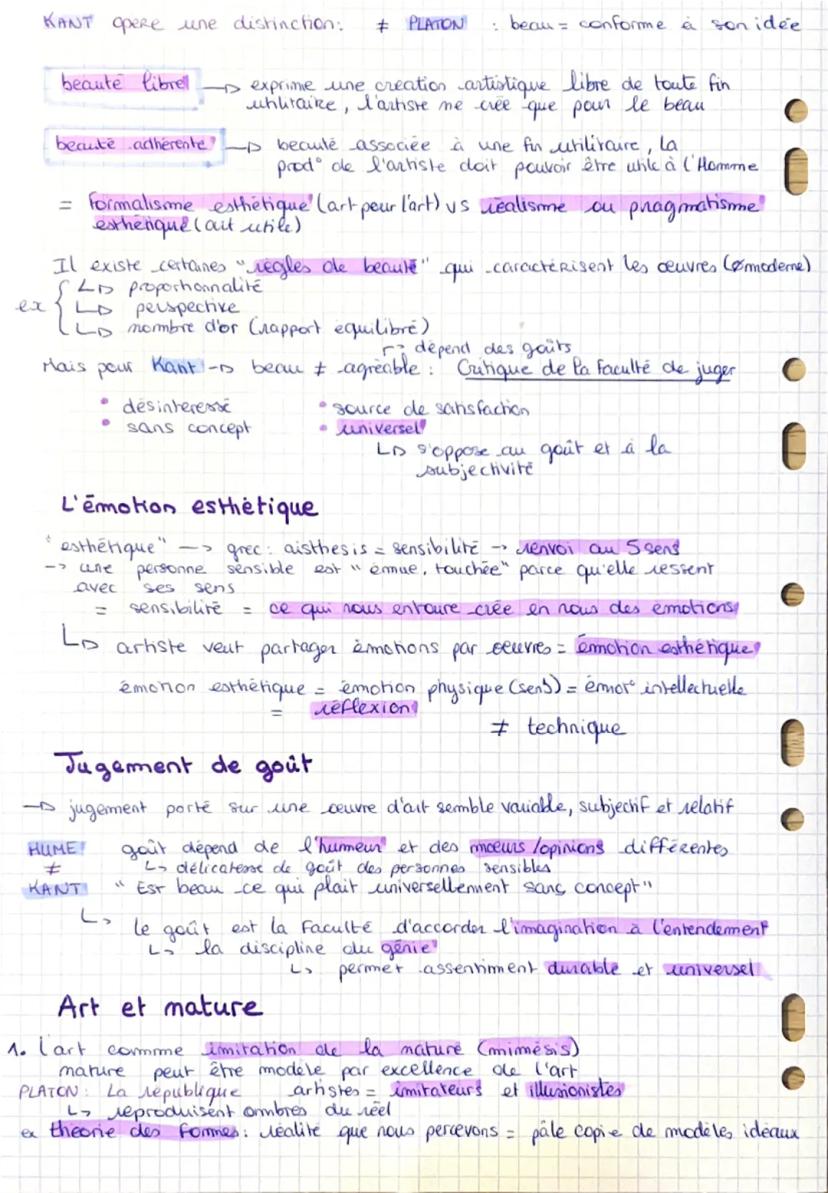 KANT opère une distinction: ≠ PLATON : beau = conforme à son idée
beauté libre → exprime une création artistique libre de toute fin
utilitaire, l'artiste ne crée que pour le beau
beauté adhérente → beauté associée à une fin utilitaire, la
prod° de l'artiste doit pouvoir être utile à l'Homme
= formalisme esthétique (art pour l'art) vs réalisme ou pragmatisme
esthétique (art utile)
Il existe certaines "règles de beauté" qui caractérisent les œuvres (ø moderne)
ex { ↳ proportionnalité
↳ perspective
↳ nombre d'or (rapport équilibré)
↱ dépend des goûts
Mais pour Kant → beau ≠ agréable : Critique de la Faculté de juger
• désinteressé • source de satisfaction
• sans concept • universel
↳ s'oppose au goût et à la
subjectivité
L'émotion esthétique
"esthétique" → grec: aisthesis = sensibilité → renvoi au 5 sens
→ une personne sensible est "émue, touchée" parce qu'elle ressent
avec ses sens
= sensibilité = ce qui nous entoure crée en nous des émotions
↳ artiste veut partager émotions par œuvres = émotion esthétique
émotion esthétique = émotion physique (sens) = émot° intellectuelle
= réflexion
≠ technique
Jugement de goût
→ jugement porté sur une œuvre d'art semble variable, subjectif et relatif
HUME goût dépend de l'humeur et des mœurs/opinions différentes
≠ ↳ délicatesse de goût des personnes sensibles
KANT "Est beau ce qui plait universellement sans concept"
↳ le goût est la Faculté d'accorder l'imagination à l'entendement
↳ la discipline du génie
↳ permet assentiment durable et universel
Art et nature
1. l'art comme imitation de la nature (mimésis)
nature peut être modèle par excellence de l'art
PLATON: La république artistes = imitateurs et illusionistes
↳ reproduisent ombres du réel
ex théorie des formes: réalité que nous percevons = pâle copie de modèles idéaux